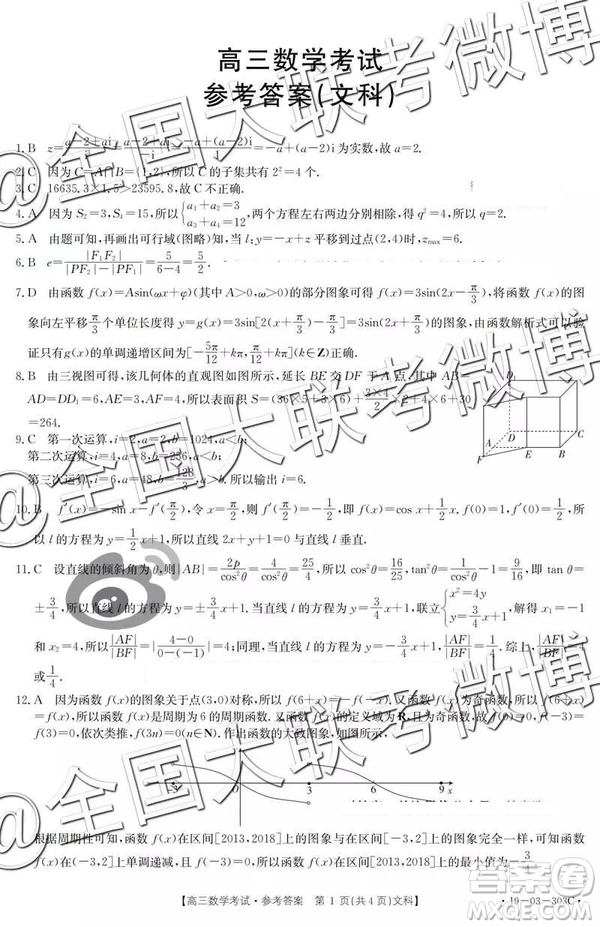 高三数学考试
参考答案(文科)
1.B z=(a-2+ai)/ 为实数,故a=2.
2.C 因为C=A∩B={1,2},所以C的子集共有2²=4个.
3.C 16635.3×1.5>23595.8,故C不正确.
4.A 因为S₂=3,S₄=15,所以{a₁+a₂=3 a₃+a₄=12,两个方程左右两边分别相除,得q²=4,所以q=2.
5.A 由题可知,再画出可行域(图略)知,当l:y=-x+z平移到点(2,4)时,z_max=6.
6.B e=|F₁F₂|/(|PF₂|-|PF₁|)=5/(6-4)=5/2.
7.D 由函数f(x)=Asin(ωx+φ)(其中A>0,ω>0)的部分图象可得f(x)=3sin(2x-π/3),将函数f(x)的图
象向左平移π/3个单位长度得g(x)=3sin[2(x+π/3)-π/3]=3sin(2x+π/3)的图象,由函数解析式可以验
证只有g(x)的单调递增区间为[-5π/12+kπ,π/12+kπ](k∈Z)满足.
8.B 由三视图可得,该几何体的直观图如图所示,延长BE交DF于A点,其中AB=
AD=DD₁=6,AE=3,AF=4,所以表面积S=(36×5+3×6)+(3×4/2×2+4×6+30)
=264.
9.C 第一次运算,i=2,a=2,b=1024,a<b;
第二次运算,i=4,a=8,b=256,a<b;
第三次运算,i=6,a=48,b=128/3,a>b.所以输出i=6.
10.B f′(x)=-sin x-f′(π/2),令x=π/2,则f′(π/2)=-1/2,f(x)=cos x+1/2x.因为f(0)=1,f′(0)=1/2,所
以l的方程为y=1/2x+1,所以直线2x+y+1=0与直线l垂直.
11.C 设直线l的倾斜角为θ,则|AB|=2p/cos²θ=4/cos²θ=25/4,所以cos²θ=16/25,tan²θ=1/cos²θ-1=9/16,即tan θ=
±3/4,所以直线l的方程为y=±3/4x+1.当直线l的方程为y=3/4x+1时,联立{x²=4y y=3/4x+1,解得x₁=-1
和x₂=4,所以|AF|/|BF|=|4-0|/|0-(-1)|=4;同理,当直线l的方程为y=-3/4x+1时,|AF|/|BF|=1/4.综上,|AF|/|BF|=4
或1/4.
12.A 因为函数f(x)的图象关于点(3,0)对称,所以f(6+x)=-f(-x).又函数f(x)为奇函数,所以f(6+x)=
f(x),所以函数f(x)是周期为6的周期函数.又函数f(x)的定义域为R,且为奇函数,故f(0)=0,f(-3)=
f(3)=0,依次类推,f(3n)=0(n∈N).作出函数的大致图象,如图所示,
根据周期性可知,函数f(x)在区间[2013,2018]上的图象与在区间[-3,2]上的图象完全一样,可知函数
f(x)在(-3,2]上单调递减,且f(-3)=0,所以函数f(x)在区间[2013,2018]上的最小值为-3/4.
【高三数学考试·参考答案 第1页(共4页)文科】
·19-03-303C·
@全国大联考微博
@全国大联考微博
@全国大联考微博